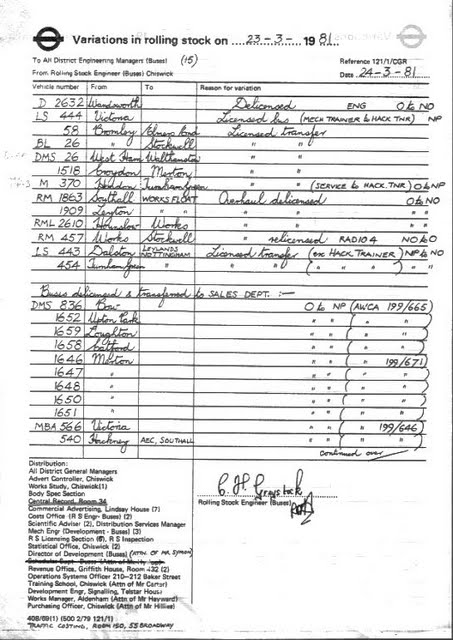 Variations in rolling stock on 23-3- 1981
To All District Engineering Managers (Buses) (15) Reference 121/1/CGR
From Rolling Stock Engineer (Buses) Chiswick Date 24-3-81
Vehicle number From To Reason for variation
D 2632 Wandsworth Delicensed ENG O to NO
LS 444 Victoria Licensed bus (MECH TRAINER to HACK TNR) NP
58 Bromley Elmers End Licensed transfer
BL 26 " Stockwell " "
DMS 26 West Ham Walthamstow " "
1518 Croydon Merton " "
M 370 Hendon Turnham Green " " (SERVICE to HACK.TNR) O to NP
RM 1863 Southall WORKS FLOAT Overhaul delicensed O to NO
1909 Leyton " " " " "
RML 2610 Hounslow Works " " "
RM 457 Works Stockwell " relicensed RADIO 4 NO to O
LS 443 Dalston LEYLANDS NOTTINGHAM Licensed transfer (ex HACK TRAINER) NP to NO
454 Turnham Green " " " ( " " ) " "
Buses delicensed & transferred to SALES DEPT. :—
DMS 836 Bow O to NP (AWCA 199/665)
1652 Upton Park " " ( " " )
1659 Loughton " " ( " " )
1658 Catford " " ( " " )
1646 Merton " " ( " 199/671)
1647 " " " ( " " )
1648 " " " ( " " )
1650 " " " ( " " )
1651 " " " ( " " )
MBA 566 Victoria " " ( " 199/646)
540 Hackney AEC, SOUTHALL " " ( " " )
continued over
Distribution:
All District General Managers
Advert Controller, Chiswick
Works Study, Chiswick(1)
Body Spec Section
Central Record, Room 34
Commercial Advertising, Lindsay House (7)
Costs Office (R S Engr- Buses) (2)
Scientific Adviser (2), Distribution Services Manager
Mech Engr (Development - Buses) (3)
R S Licensing Section (6), R S Inspection
Statistical Office, Chiswick (2)
Director of Development (Buses) (ATTN OF MR SYMON)
Revenue Office, Griffith House, Room 432 (2)
Operations Systems Officer 210-212 Baker Street
Training School, Chiswick (Attn of Mr Carter)
Development Engr, Signalling, Telstar House
Works Manager, Aldenham (Attn of Mr Hayward)
Purchasing Officer, Chiswick (Attn of Mr Hillier)
C H Greystock
Rolling Stock Engineer (Buses)
408/69(1) (500 2/79 121/1)
TRAFFIC COSTING, ROOM 150, 55 BROADWAY